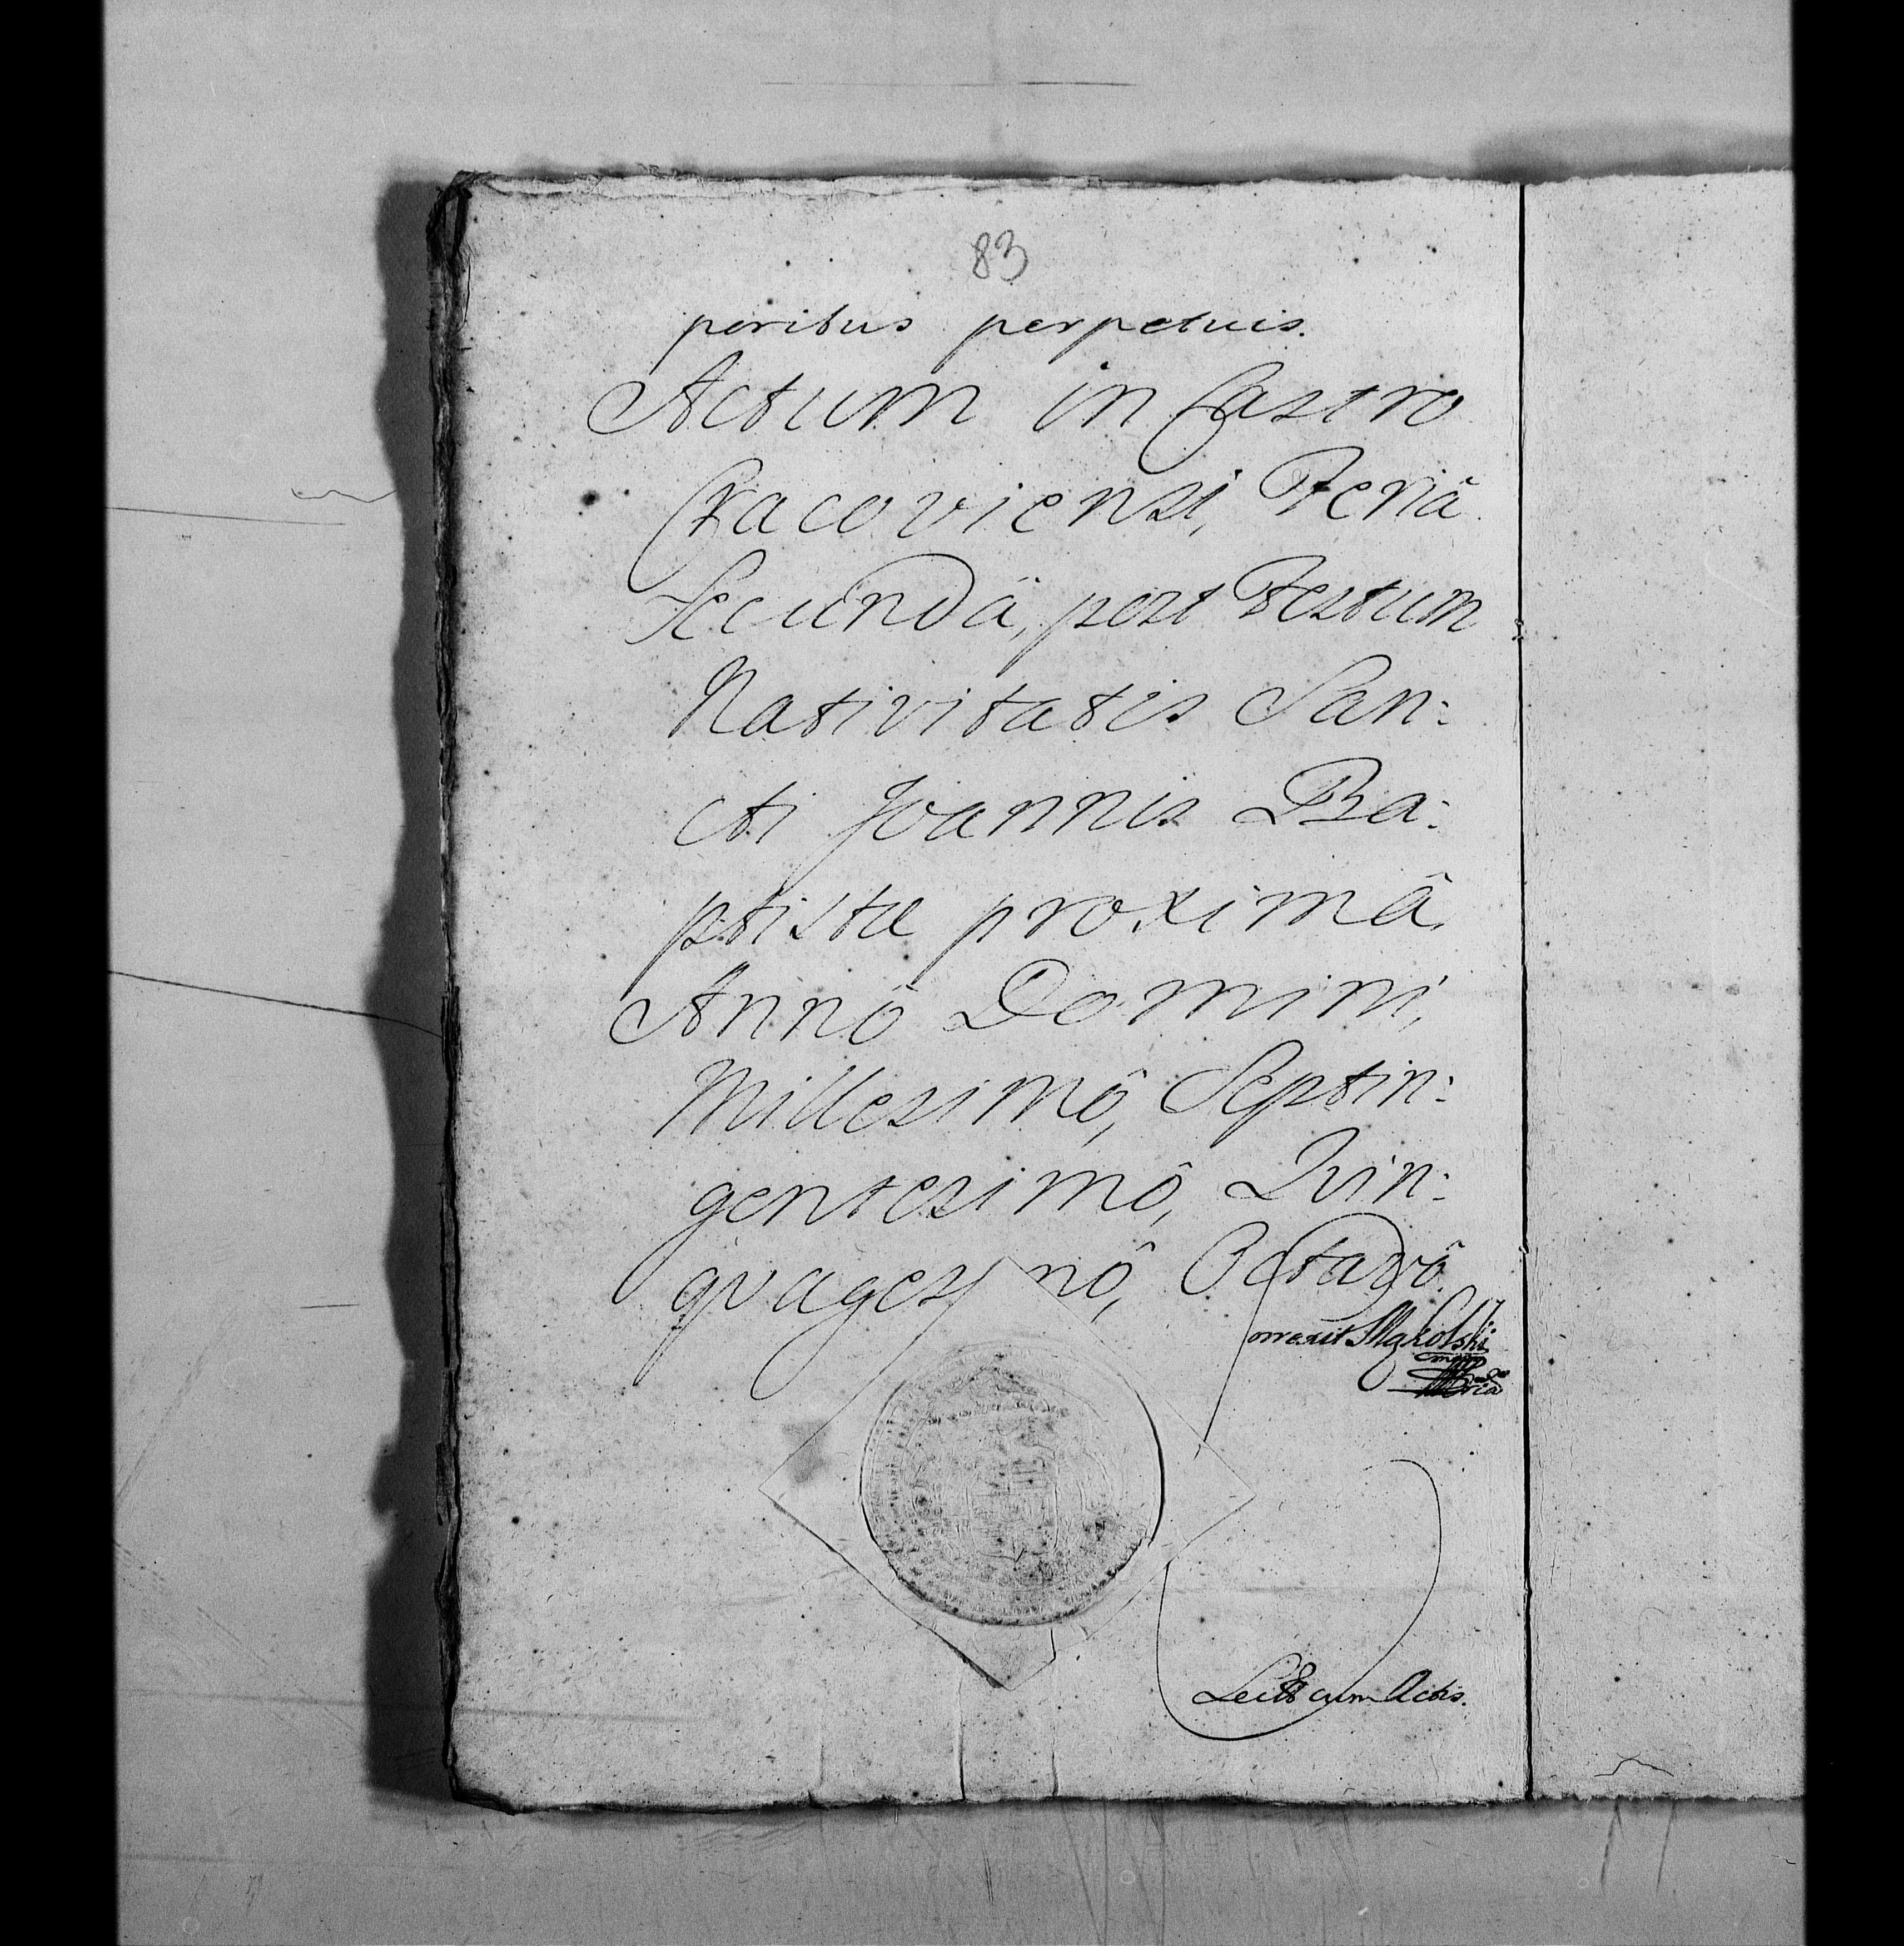 83
poribus perpetuis.
Actum in Castro
Cracoviensi, Feriâ
Secundâ, post Festum
Nativitatis San:
cti Joannis Ba:
ptistæ proximâ,
Annô Domini,
Millesimô, Septin:
gentesimô, Qvin:
qvagesimô, Octavô.
Correxit
Lect cum Actis.